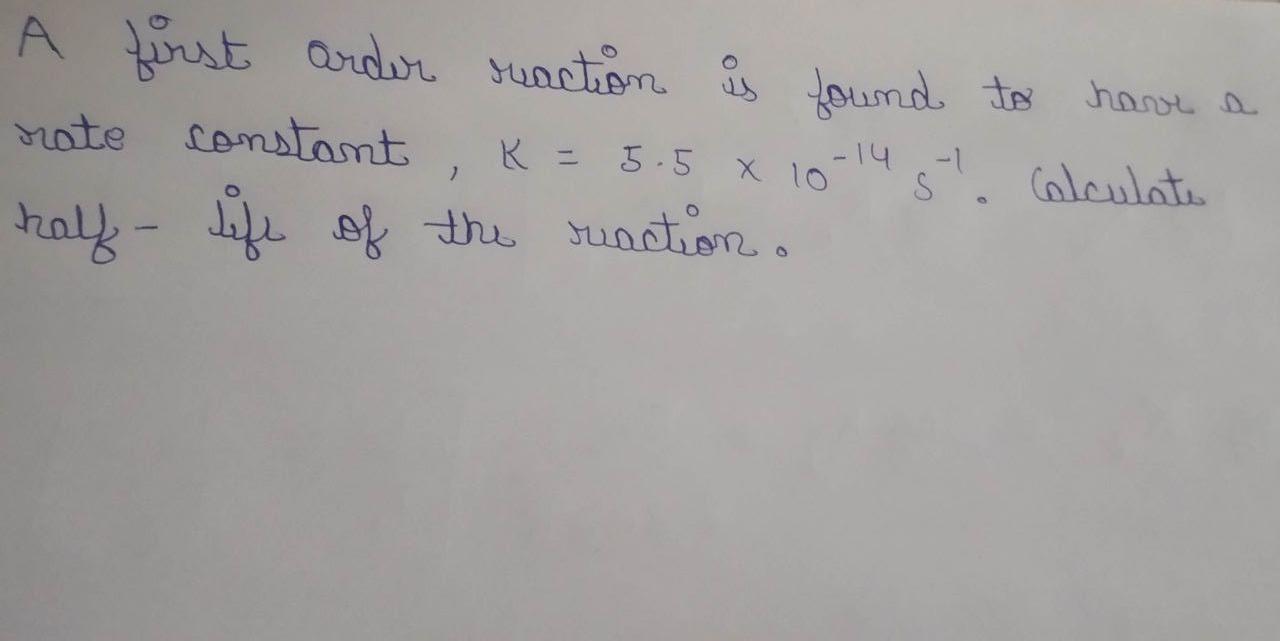 A first order reaction is found to have a
rate constant, K = 5.5 × 10⁻¹⁴ s⁻¹. Calculate
half - life of the reaction.